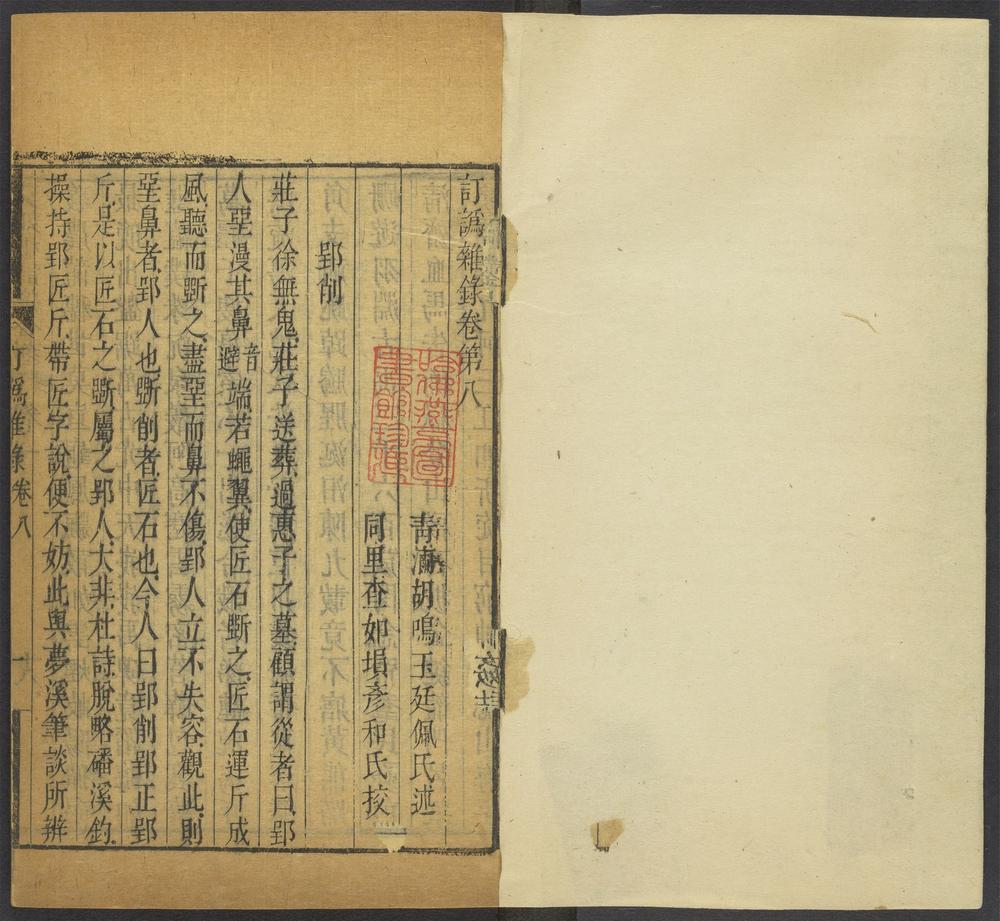 訂譌雜錄卷第八
青浦胡鳴玉廷佩氏述
同里查如塤彥和氏挍
郢削
莊子徐無鬼莊子送葬過惠子之墓顧謂從者曰郢
人堊漫其鼻音避端若蠅翼使匠石斲之匠石運斤成
風聽而斲之盡堊而鼻不傷郢人立不失容觀此則
堊鼻者郢人也斲削者匠石也今人曰郢削郢正郢
斤是以匠石之斲屬之郢人大非杜詩脫略磻溪釣
操持郢匠斤帶匠字說便不妨此與夢溪筆談所辨
訂譌雜錄卷八
一